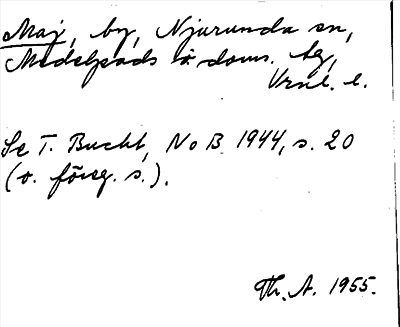 Maj, by, Njurunda sn,
Medelpads v. doms. tg,
Vrnl. l.
Se T. Bucht, NoB 1944, s. 20
(o. föreg. s.).
Th. A. 1955.